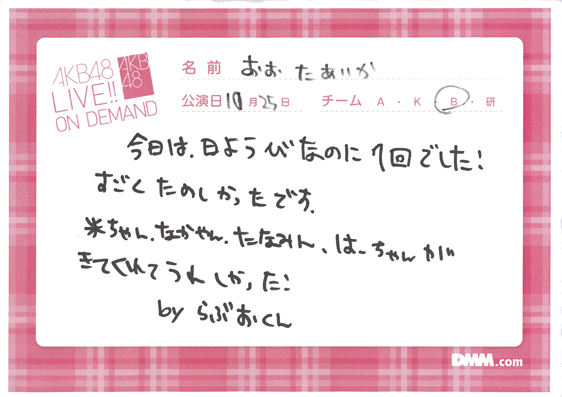 AKB48
LIVE!!
ON DEMAND
AKB
48
名前 おおたあいか
公演日 10月25日 チーム A・K・B・研
今日は、日ようびなのに1回でした!
すごくたのしかったです。
米ちゃん、なかやん、たなみん、はーちゃんが
きてくれてうれしかった!
by らぶおくん
DMM.com